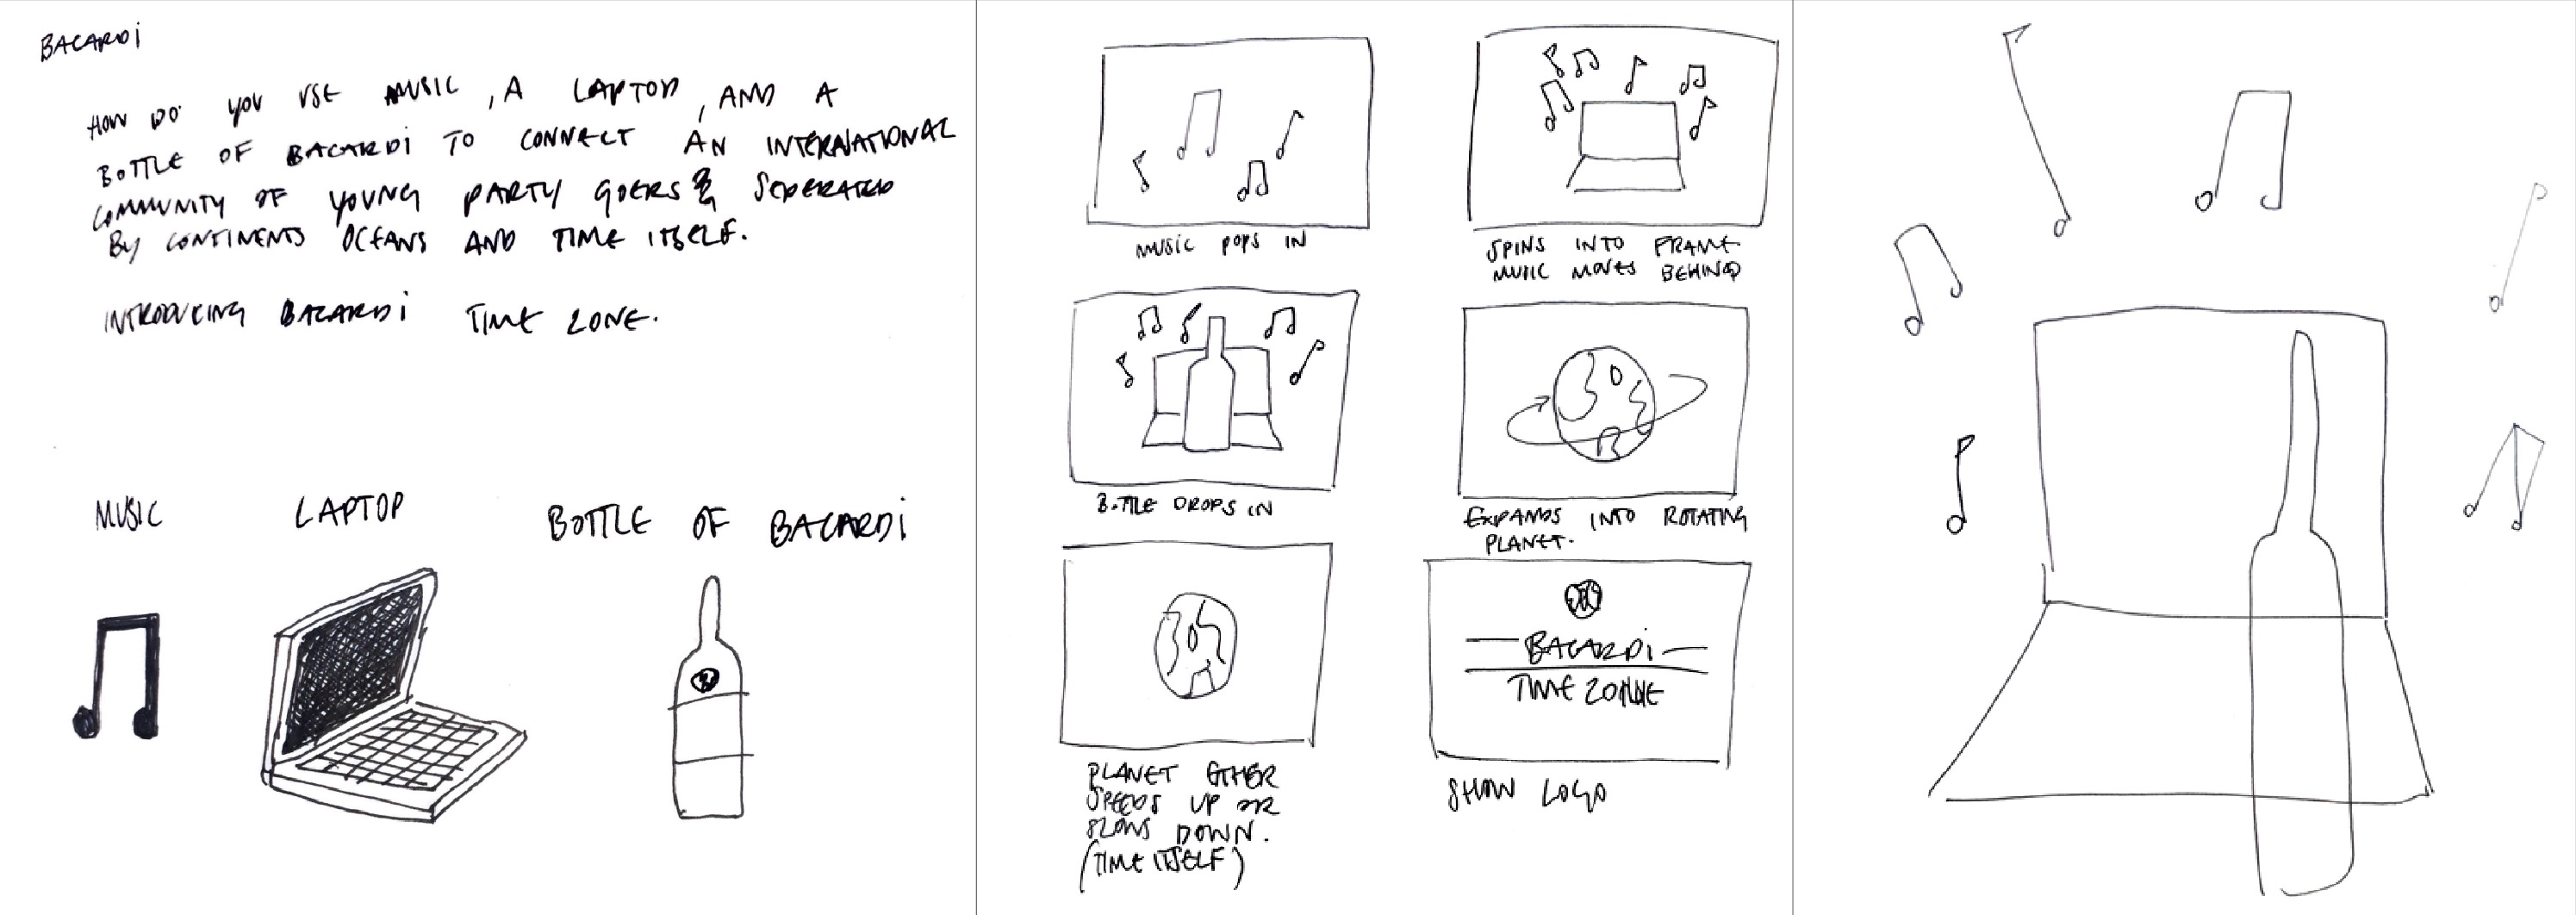 BACARDi
HOW DO YOU USE MUSIC, A LAPTOP, AND A
BOTTLE OF BACARDi TO CONNECT AN INTERNATIONAL
COMMUNITY OF YOUNG PARTY GOERS SEPERATED
BY CONTINENTS OCEANS AND TIME ITSELF.
INTRODUCING BACARDi TIME ZONE.
MUSIC
LAPTOP
BOTTLE OF BACARDi
MUSIC POPS IN
SPINS INTO FRAME
MUSIC MOVES BEHIND
BOTTLE DROPS IN
EXPANDS INTO ROTATING
PLANET.
PLANET EITHER
SPEEDS UP OR
SLOWS DOWN.
(TIME ITSELF)
BACARDi
TIME ZONE
SHOW LOGO